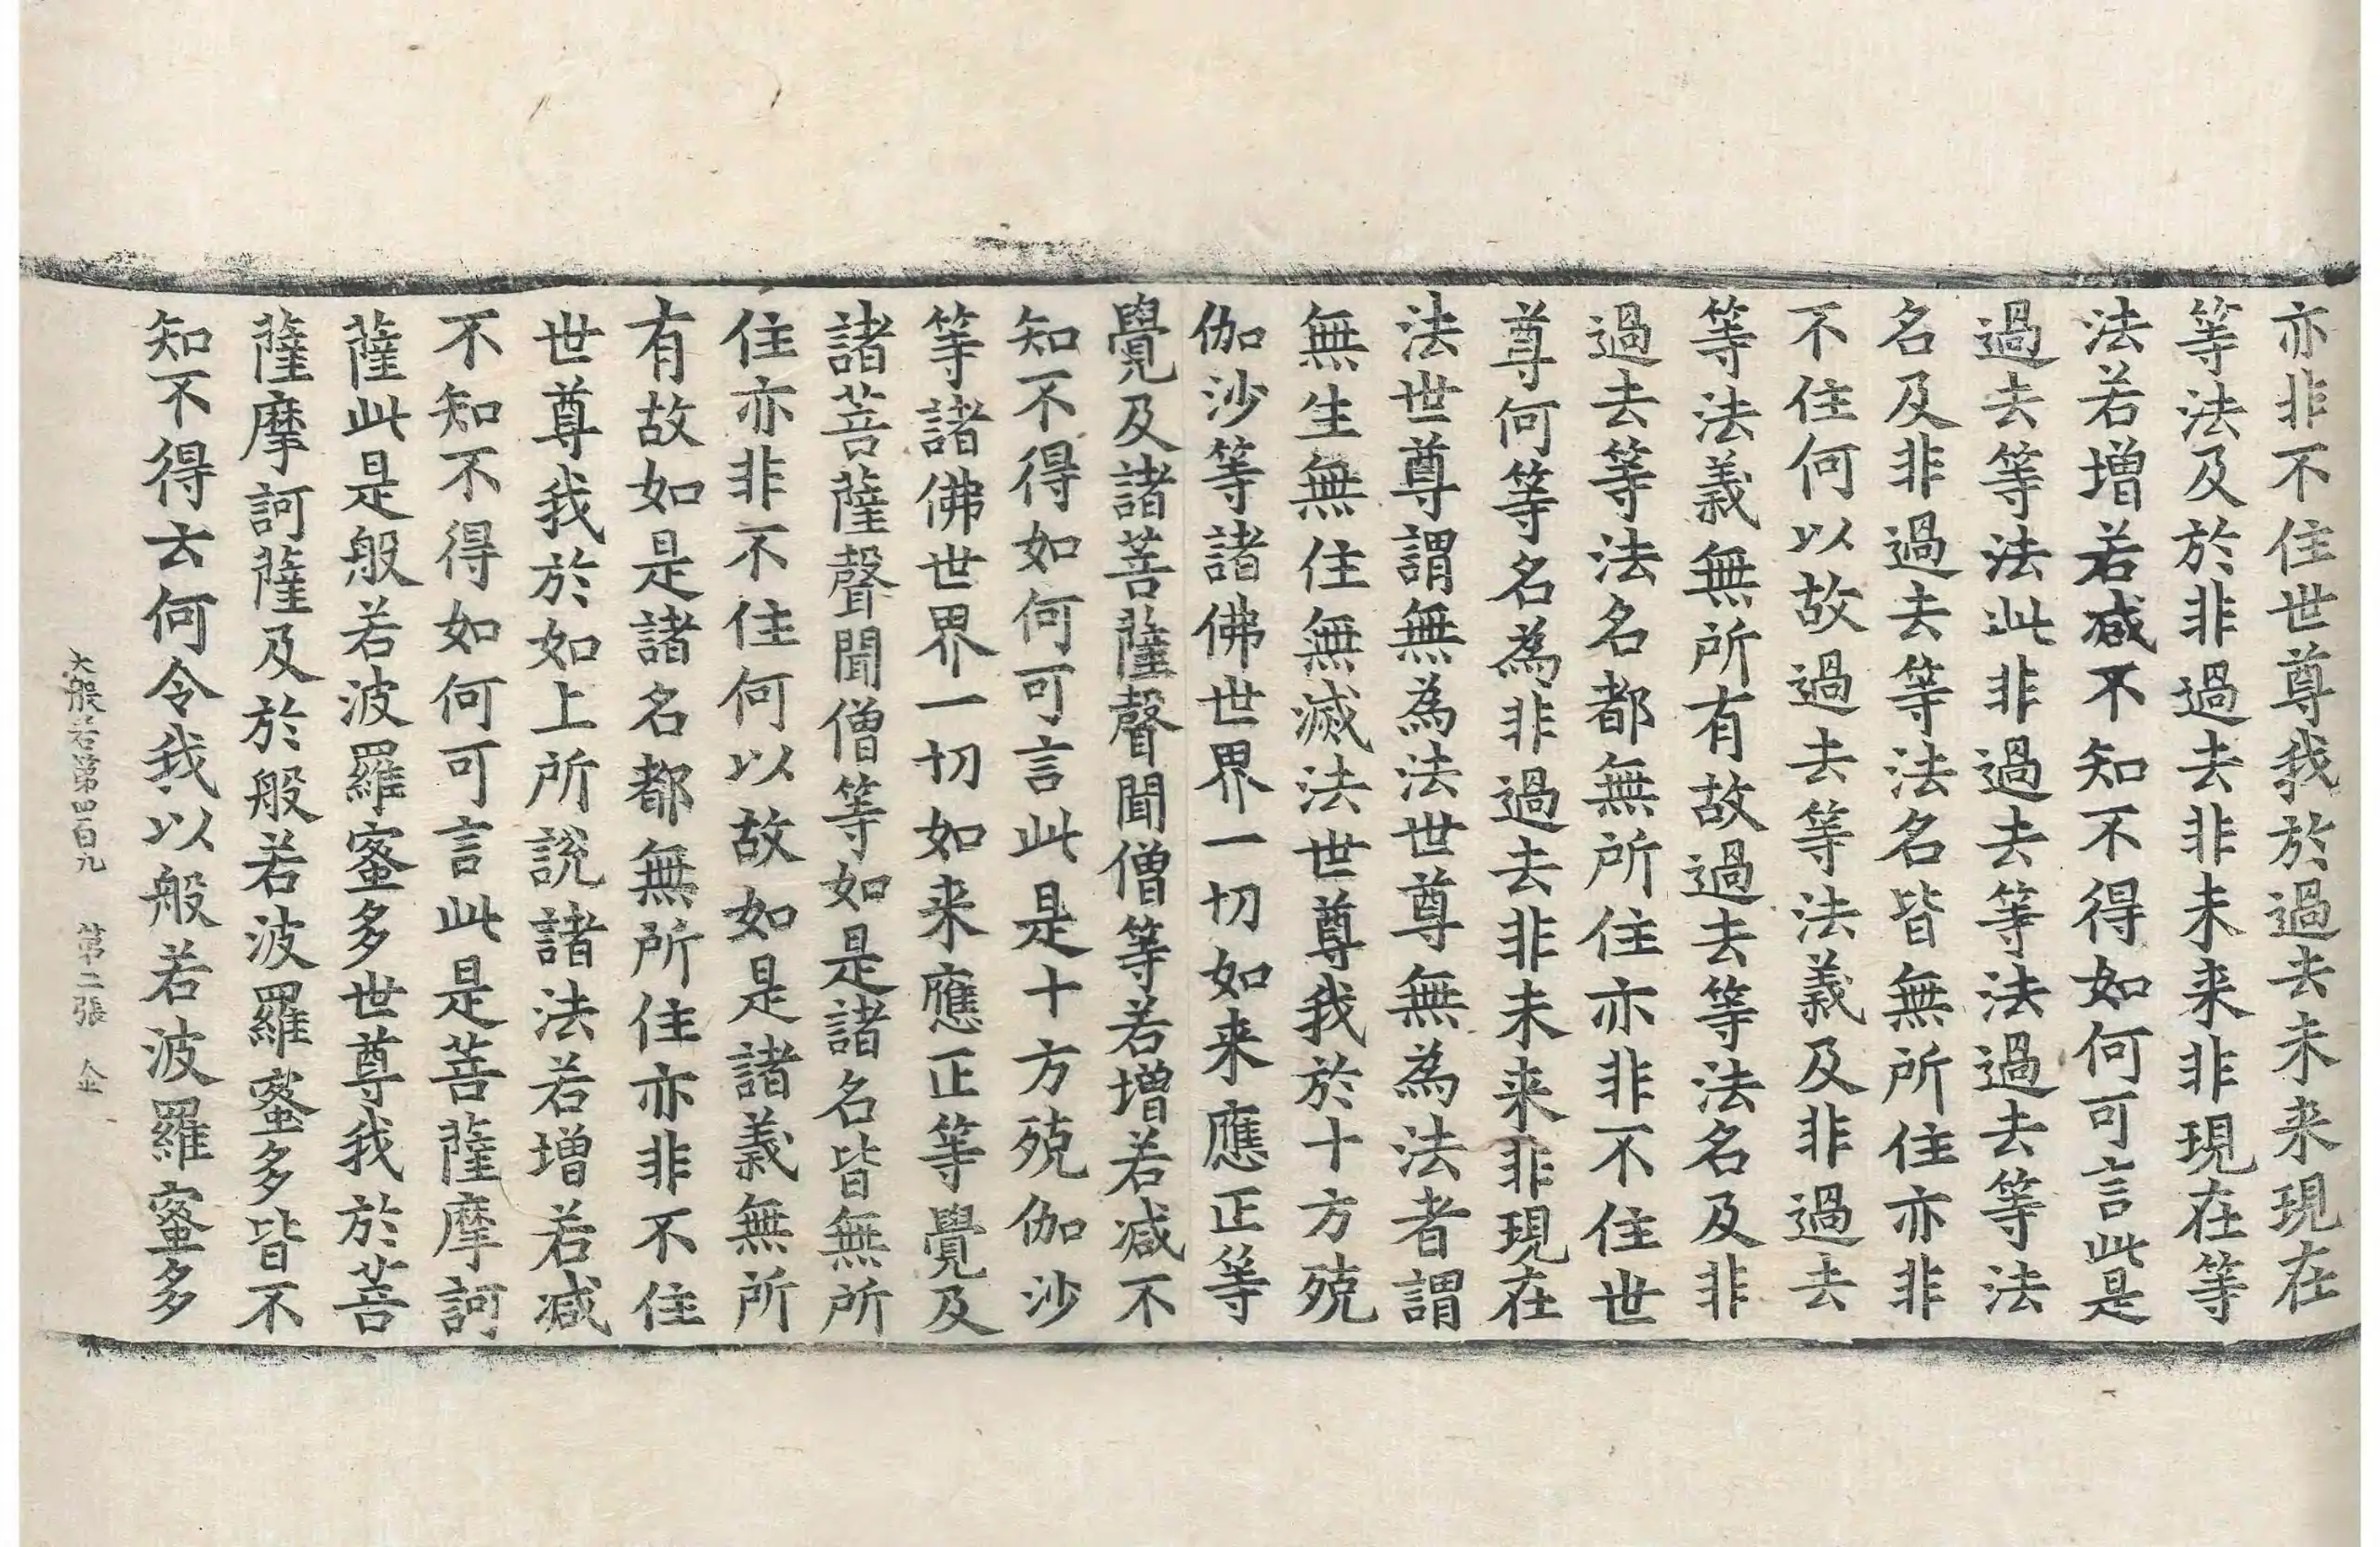 亦非不住世尊我於過去未来現在
等法及於非過去非未来非現在等
法若增若减不知不得如何可言此是
過去等法此非過去等法過去等法
名及非過去等法名皆無所住亦非
不住何以故過去等法義及非過去
等法義無所有故過去等法名及非
過去等法名都無所住亦非不住世
尊何等名為非過去非未来非現在
法世尊謂無為法世尊無為法者謂
無生無住無滅法世尊我於十方殑
伽沙等諸佛世界一切如来應正等
覺及諸菩薩聲聞僧等若增若减不
知不得如何可言此是十方殑伽沙
等諸佛世界一切如来應正等覺及
諸菩薩聲聞僧等如是諸名皆無所
住亦非不住何以故如是諸義無所
有故如是諸名都無所住亦非不住
世尊我於如上所說諸法若增若减
不知不得如何可言此是菩薩摩訶
薩此是般若波羅蜜多世尊我於菩
薩摩訶薩及於般若波羅蜜多皆不
知不得云何令我以般若波羅蜜多
大般若第四百九 第二張 金